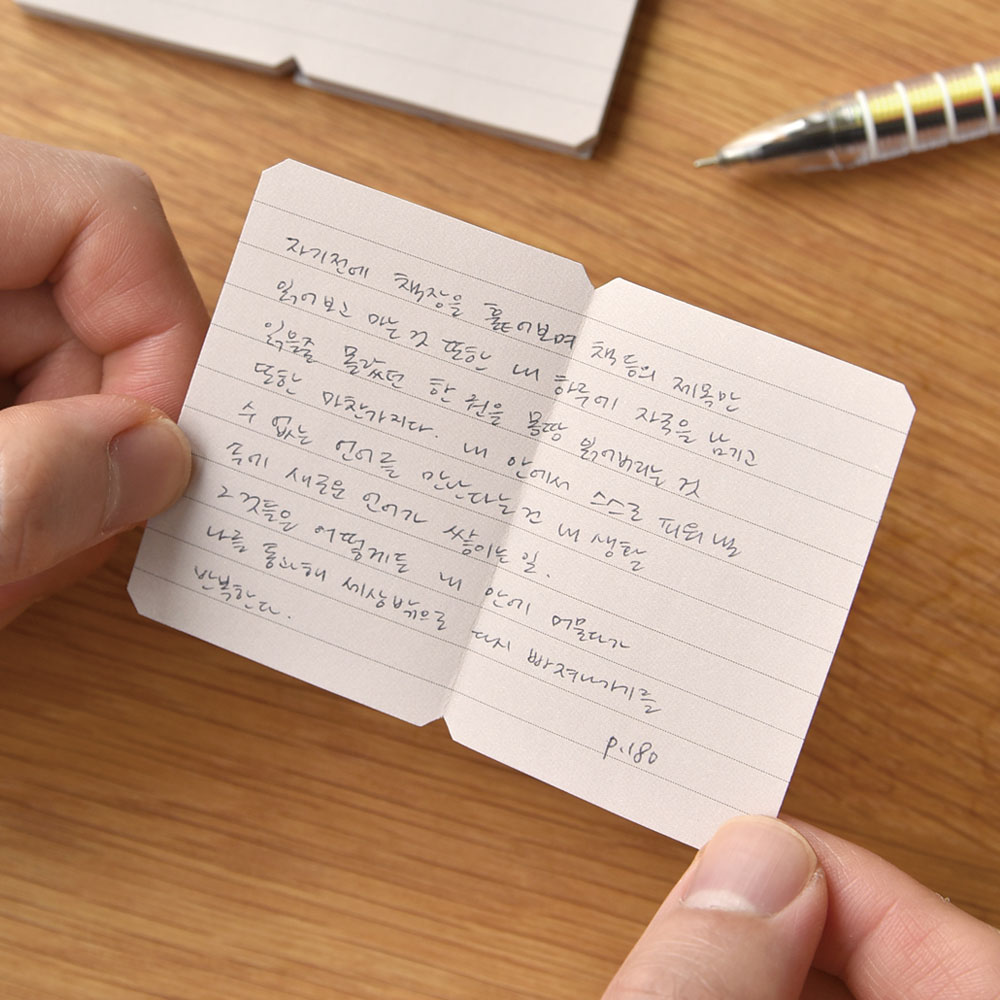 자기전에 책장을 훑어보며 책등의 제목만
읽어보고 마는 것 또한 내 하루에 자국을 남기고
읽음줄 몰랐던 한 권을 몽땅 붉어버리는 것
또한 마찬가지다. 내 안에서 스스로 피워낼
수 없는 언어를 만난다는건 내 생활
속에 새로운 언어가 쌓이는 일.
그것들은 어떻게든 내 안에 머물다가
나를 통과해 세상밖으로 다시 빠져나가기를
반복한다.
p.180